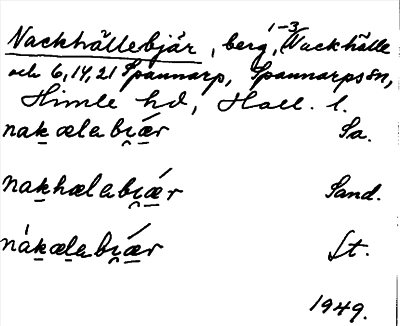 Nackhällebjär, berg, 1-3 Nackhälle
och 6, 14, 21 Spannarp, Spannarps sn,
Himle hd, Hall. l.
nakælabi̯ǽr Sa.
nakhælabi̯ǽr Sand.
nàkælabi̯ǽr St.
1949.